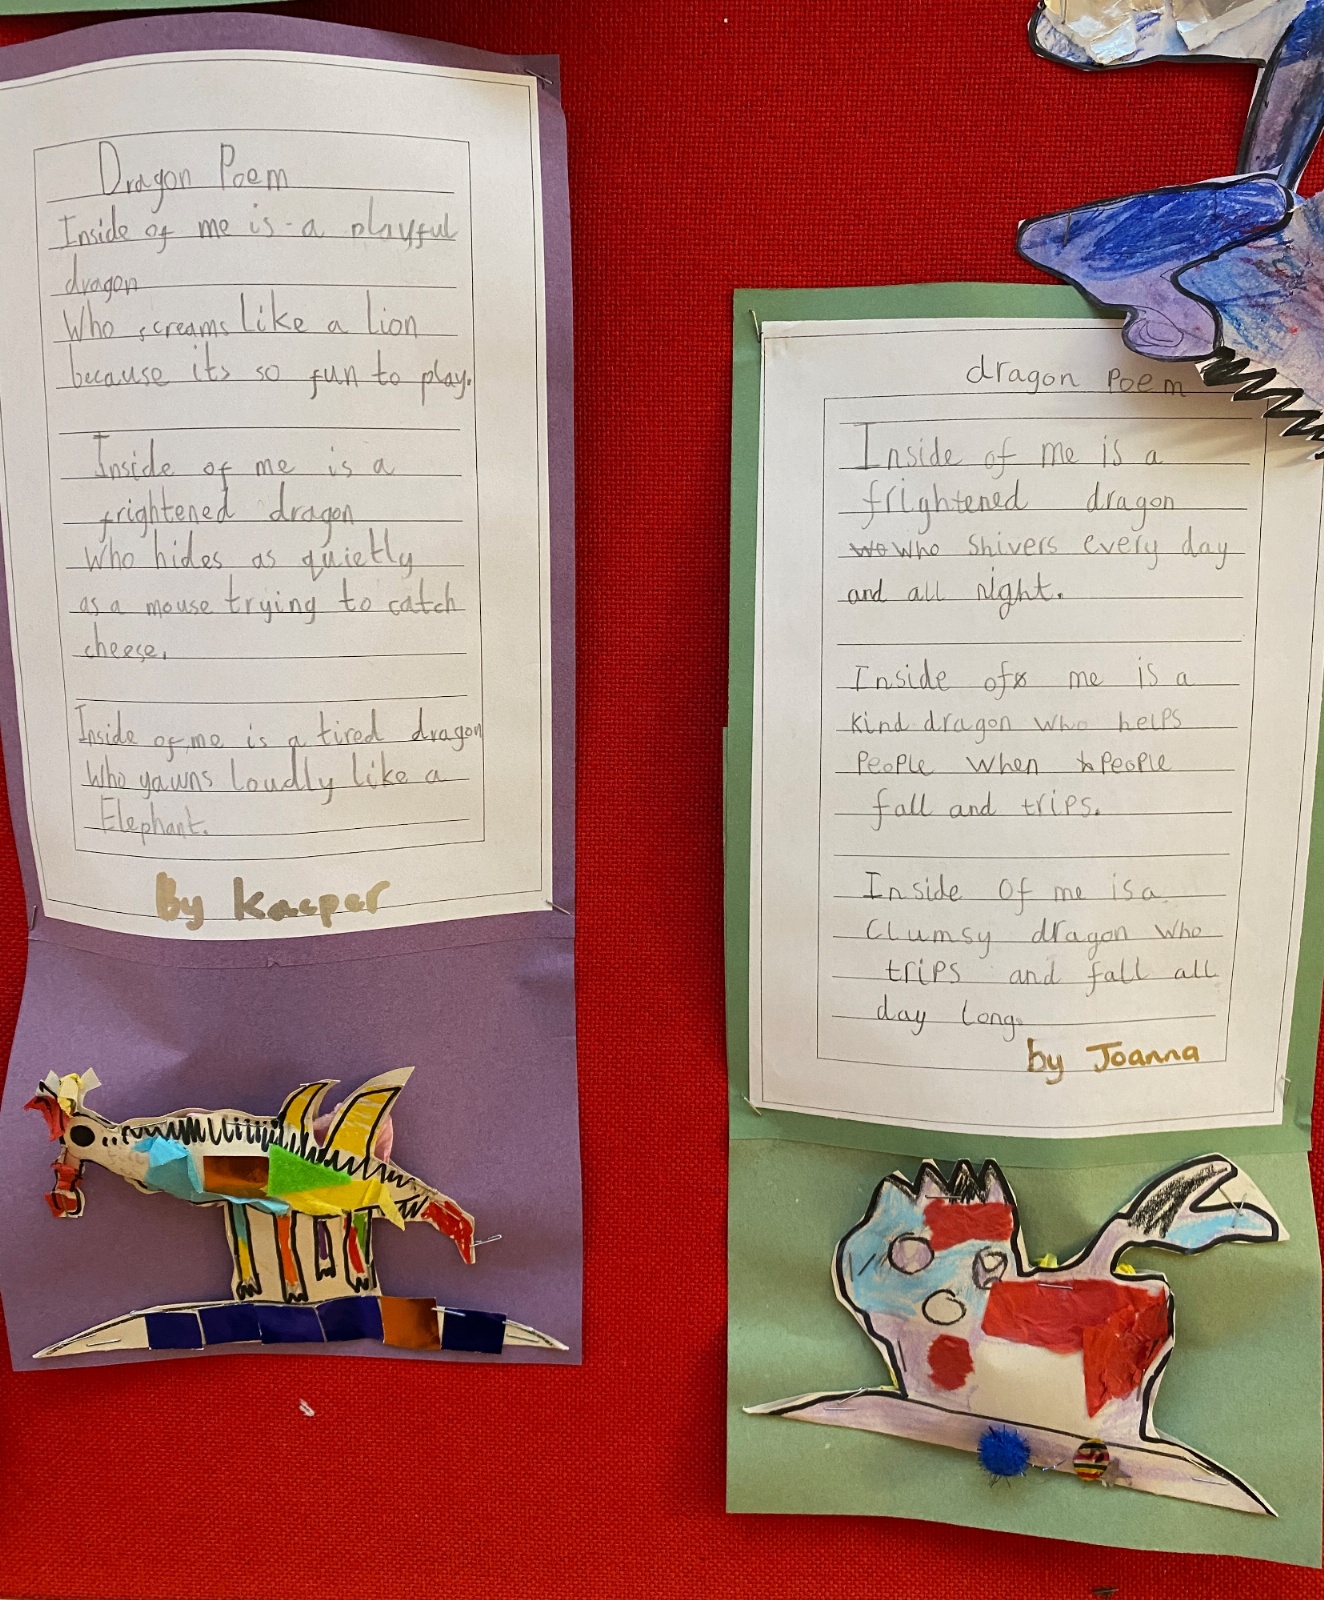 Dragon Poem
Inside of me is a playful
dragon
Who screams like a lion
because its so fun to play.
Inside of me is a
frightened dragon
Who hides as quietly
as a mouse trying to catch
cheese.
Inside of me is a tired dragon
Who yawns loudly like a
Elephant.
By Kacper
dragon Poem
Inside of me is a
frightened dragon
wo who shivers every day
and all night.
Inside of me is a
kind dragon who helps
People when People
fall and trips.
Inside Of me is a
Clumsy dragon who
trips and fall all
day long.
by Joanna